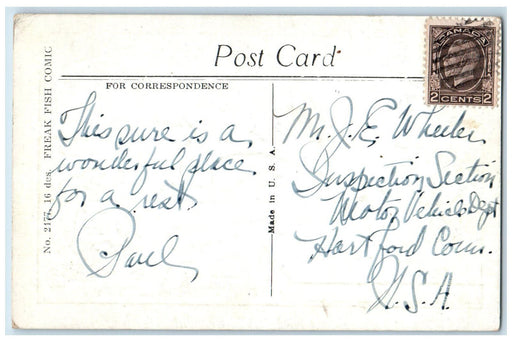 Post Card
FOR CORRESPONDENCE
No. 2177. 16 des. FREAK FISH COMIC
This sure is a
wonderful place
for a rest
Paul
Made in U. S. A.
CANADA
2 CENTS 2
Mr. J. E. Wheeler
Inspection Section
Motor Vehicle Dept
Hartford Conn.
U.S.A.